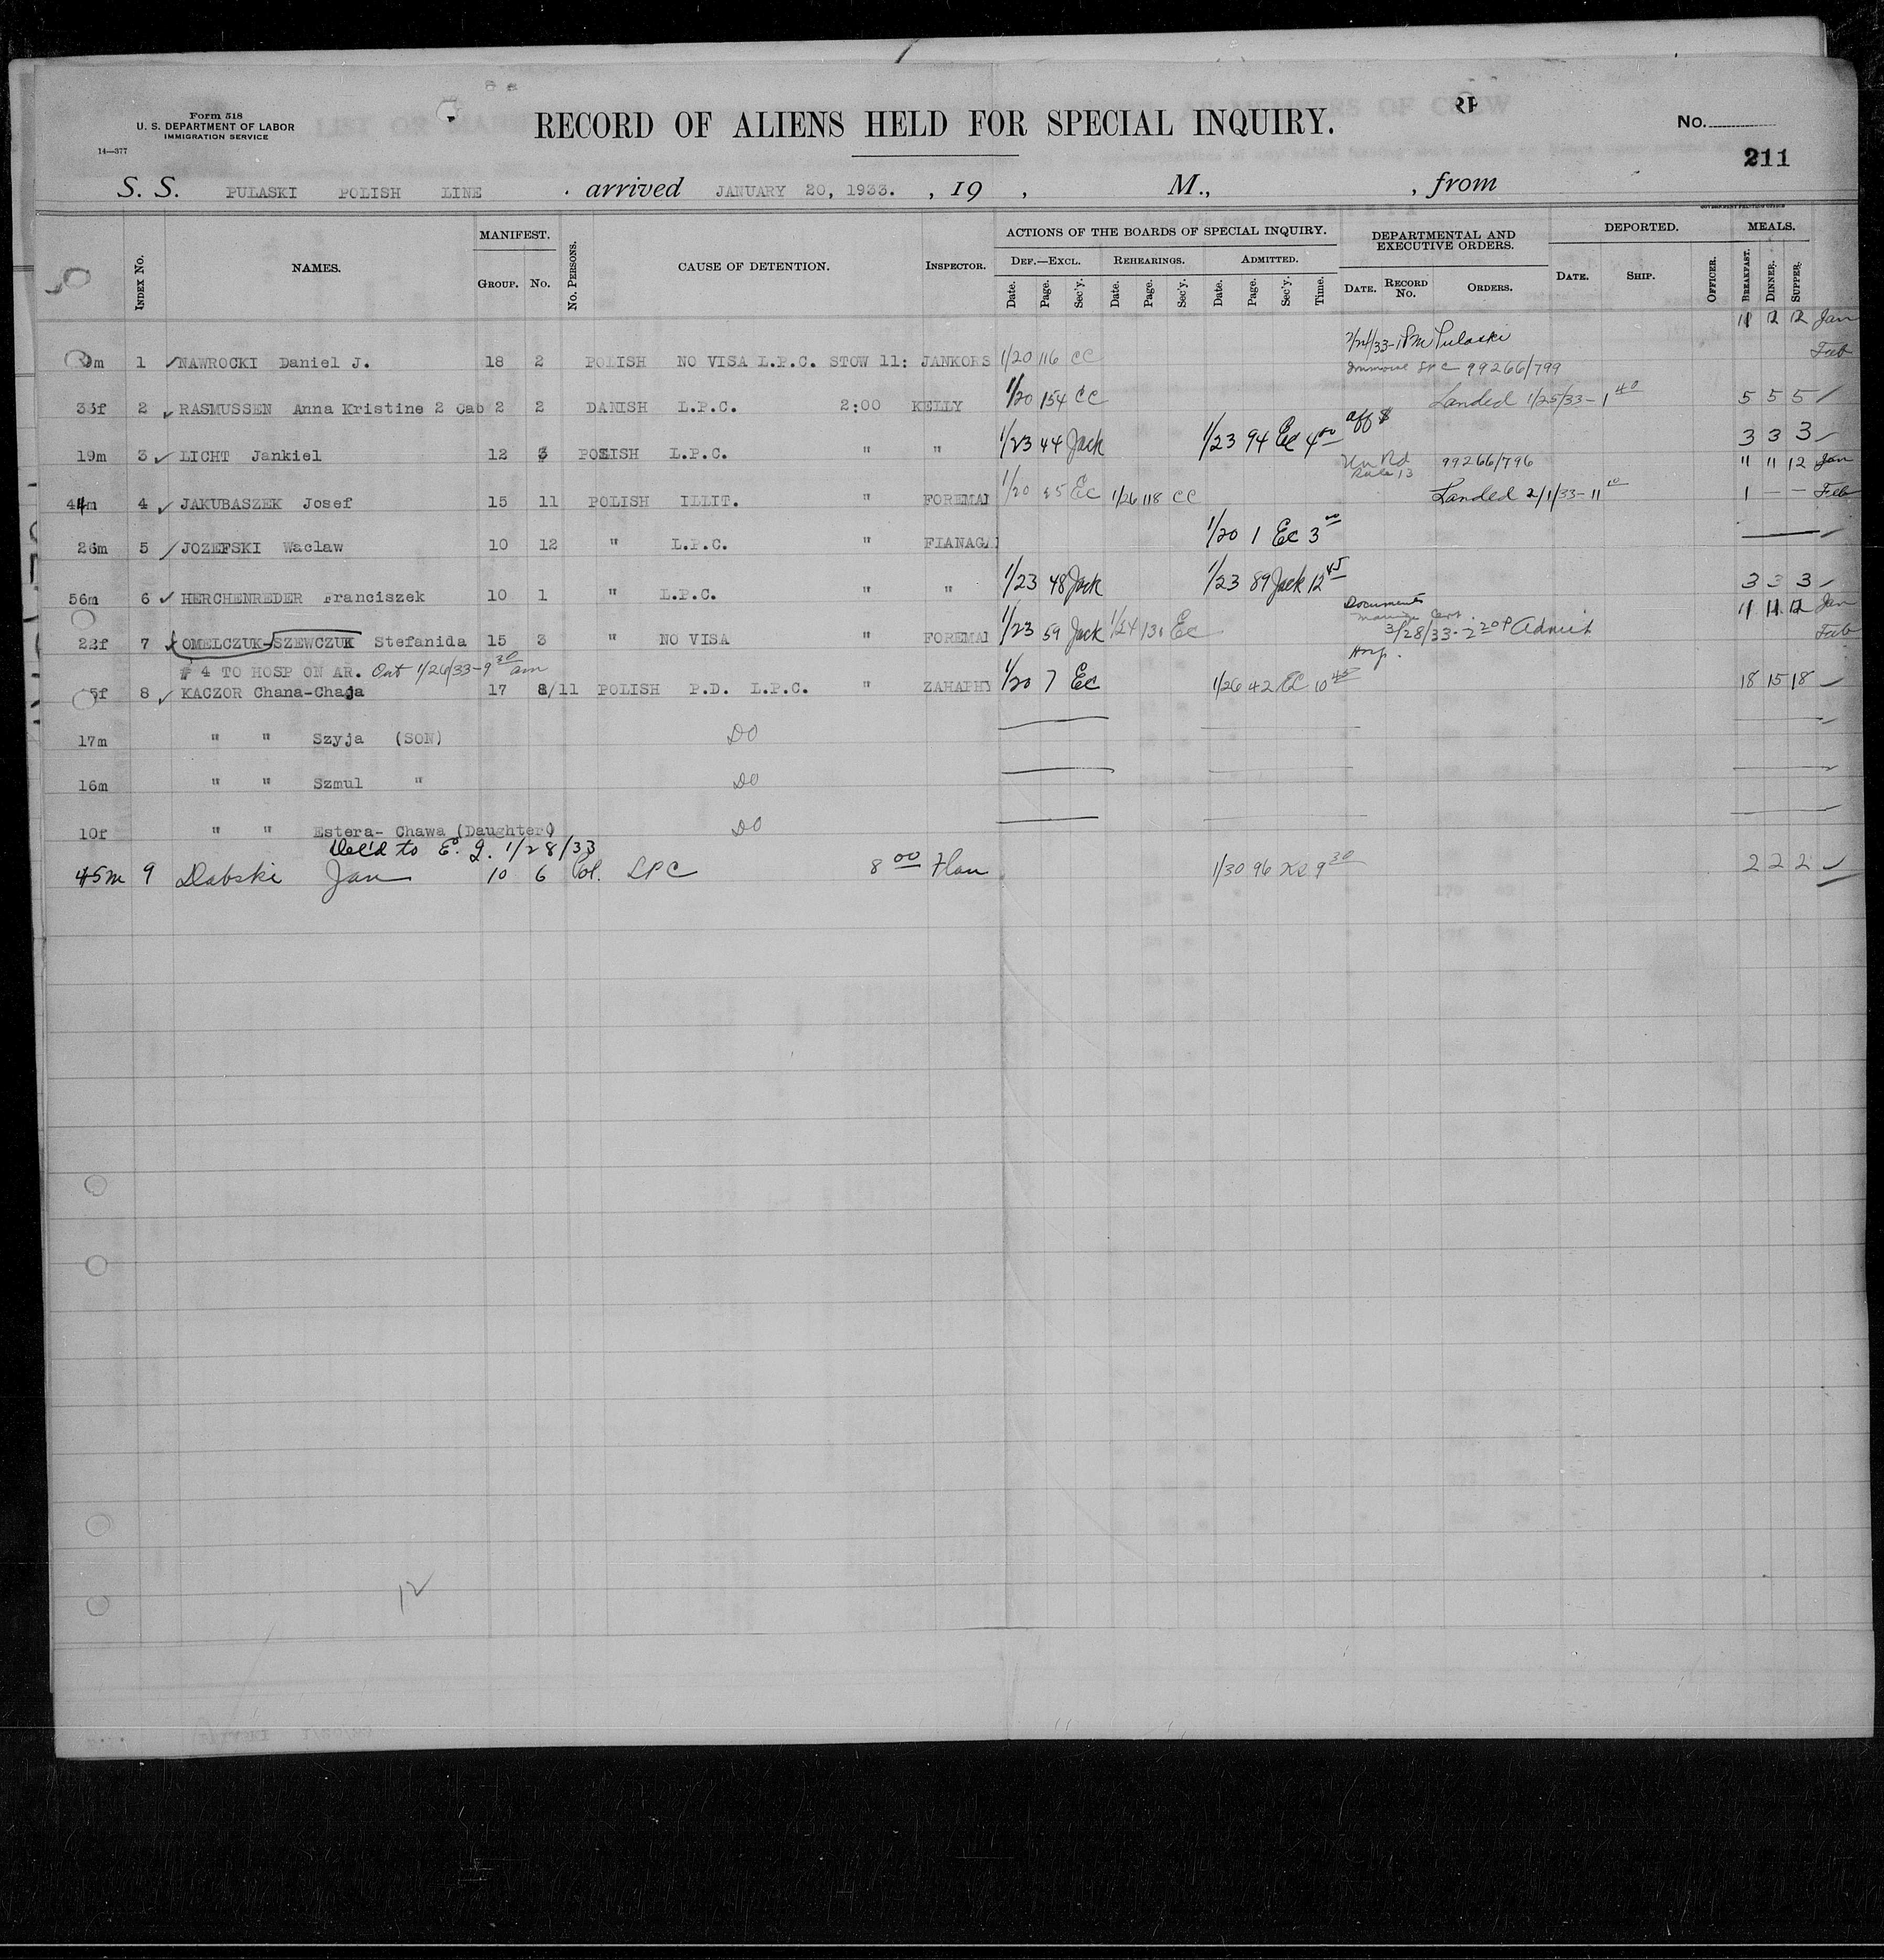 Form 518
U. S. DEPARTMENT OF LABOR
IMMIGRATION SERVICE
14—377
RECORD OF ALIENS HELD FOR SPECIAL INQUIRY.
No.
211
S. S. PULASKI POLISH LINE . arrived JANUARY 20, 1933. , 19 , M., , from
GOVERNMENT PRINTING OFFICE
INDEX NO. NAMES. MANIFEST. GROUP. NO. NO. PERSONS. CAUSE OF DETENTION. INSPECTOR. ACTIONS OF THE BOARDS OF SPECIAL INQUIRY. DEPARTMENTAL AND EXECUTIVE ORDERS. DEPORTED. MEALS.
DEF.—EXCL. REHEARINGS. ADMITTED.
Date. Page. Sec'y. Date. Page. Sec'y. Date. Page. Sec'y. Time. DATE. RECORD NO. ORDERS. DATE. SHIP. OFFICER. BREAKFAST. DINNER. SUPPER.
11 12 12 Jan
2/24/33-1PM Pulaski
m 1 NAWROCKI Daniel J. 18 2 POLISH NO VISA L.P.C. STOW 11: JANKORS 1/20 116 CC 99266/799 Feb
33f 2 RASMUSSEN Anna Kristine 2 Cab 2 2 DANISH L.P.C. 2:00 KELLY 1/20 154 CC Landed 1/25/33-1 40 5 5 5
aff $
19m 3 LICHT Jankiel 12 3 POLISH L.P.C. " " 1/23 44 Jack 1/23 94 Ec 4 00 3 3 3
Rule 13 99266/796 11 11 12 Jan
44m 4 JAKUBASZEK Josef 15 11 POLISH ILLIT. " FOREMAN 1/20 Ec 1/26 118 CC Landed 2/1/33-11 10 1 — — Feb
26m 5 JOZEFSKI Waclaw 10 12 " L.P.C. FIANAGA 1/20 1 Ec 3 00
56m 6 HERCHENREDER Franciszek 10 1 " L.P.C. " " 1/23 48 Jack 1/23 89 Jack 12 45 3 3 3
Documents
Marriage Cert. 11 11 12 Jan
22f 7 OMELCZUK-SZEWCZUK Stefanida 15 3 " NO VISA " FOREMAN 1/23 59 Jack 1/24 131 Ec 3/28/33-2 20 P Admit Feb
Hosp.
# 4 TO HOSP ON AR. Out 1/26/33-9 30 am
5f 8 KACZOR Chana-Chaja 17 8/11 POLISH P.D. L.P.C. " ZAHAPHY 1/20 7 Ec 1/26 42 EC 10 45 18 15 18
17m " " Szyja (SON) DO
16m " " Szmul " DO
10f " " Estera- Chawa (Daughter) DO
Rec'd to E. I. 1/28/33
45m 9 Dabski Jan 10 6 Pol. LPC 8 00 Flan 1/30 96 9 30 2 2 2
12